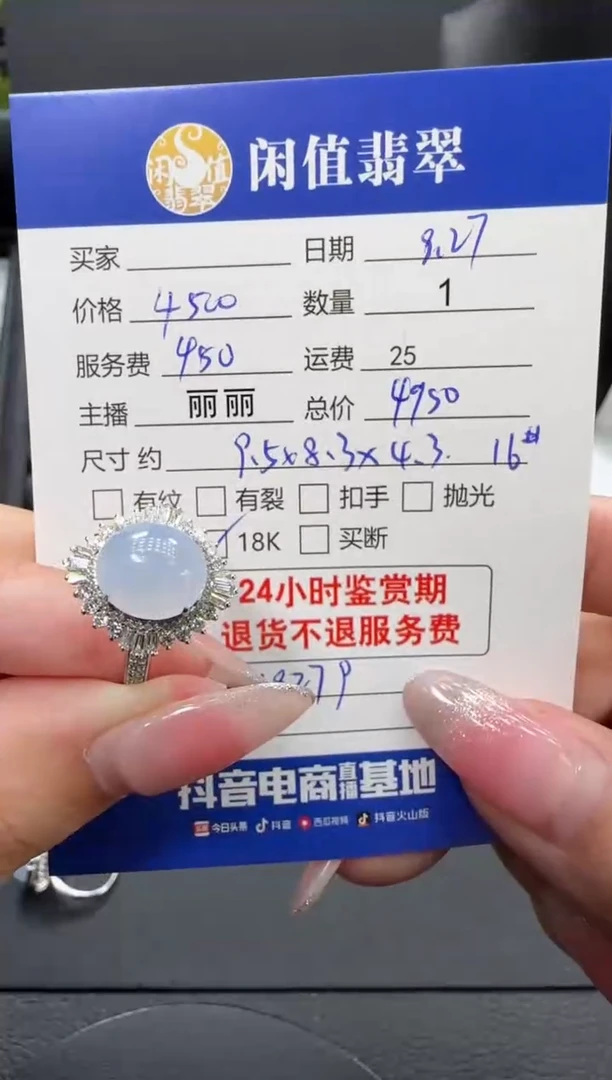 闲值翡翠
闲值
翡翠
买家 日期 9.27
价格 4500 数量 1
服务费 450 运费 25
主播 丽丽 总价 4950
尺寸 约 9.5x8.3x4.3. 16#
有纹 有裂 扣手 抛光
18K 买断
24小时鉴赏期
退货不退服务费
抖音电商直播基地
头条 今日头条 抖音 西瓜视频 抖音火山版